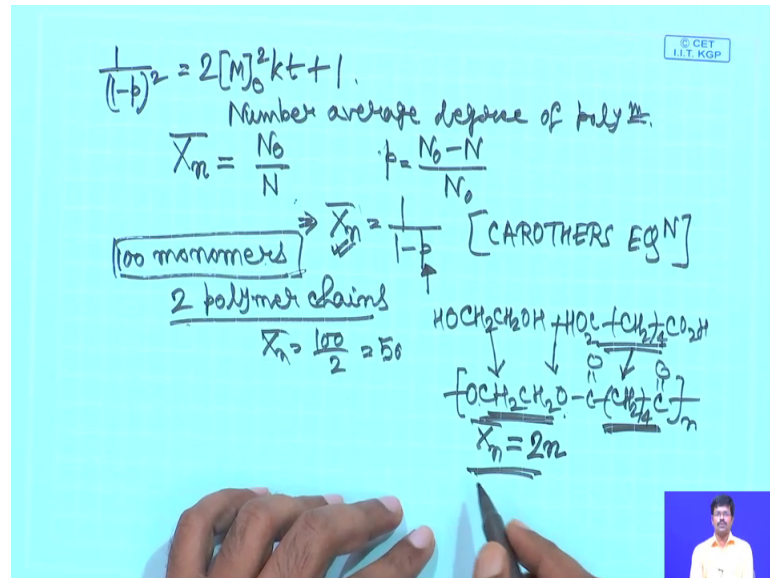 © CET
I.I.T. KGP
1/(1-p)² = 2[M]₀²kt + 1.
Number average degree of polyᵐ.
X̄n = N₀/N    p = (N₀-N)/N₀
⇒ X̄n = 1/(1-p) [CAROTHERS EQᴺ]
100 monomers
2 polymer chains
X̄n = 100/2 = 50
HOCH₂CH₂OH + HO₂C-(CH₂)₄CO₂H
-[OCH₂CH₂O-C(=O)-(CH₂)₄C(=O)]-n
X̄n = 2n